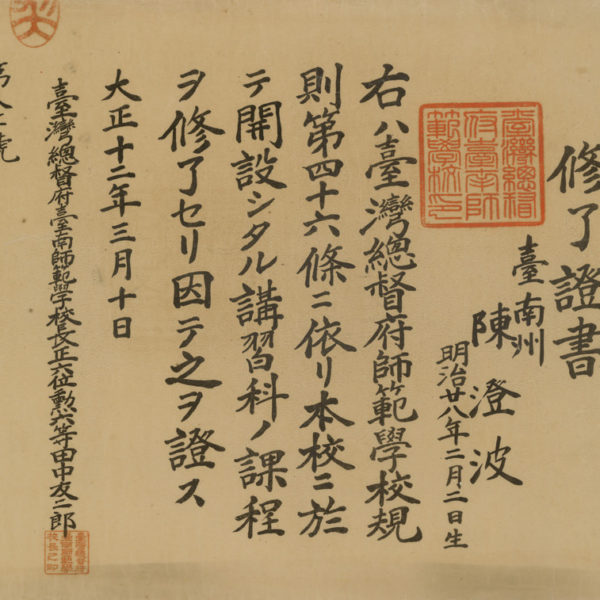 修了證書
臺南州
陳澄波
明治廿八年二月二日生
右ハ臺灣總督府師範學校規
則第四十六條ニ依リ本校ニ於
テ開設シタル講習科ノ課程
ヲ修了セリ因テ之ヲ證ス
大正十二年三月十日
臺灣總督府臺南師範學校長正六位勳六等田中友二郎
臺灣總督
府臺南師
範學校印